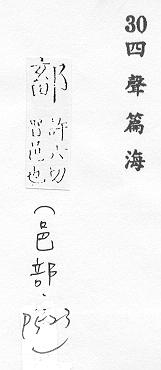 30四聲篇海
鄐
許六切
晉邑也
(邑部、P523)